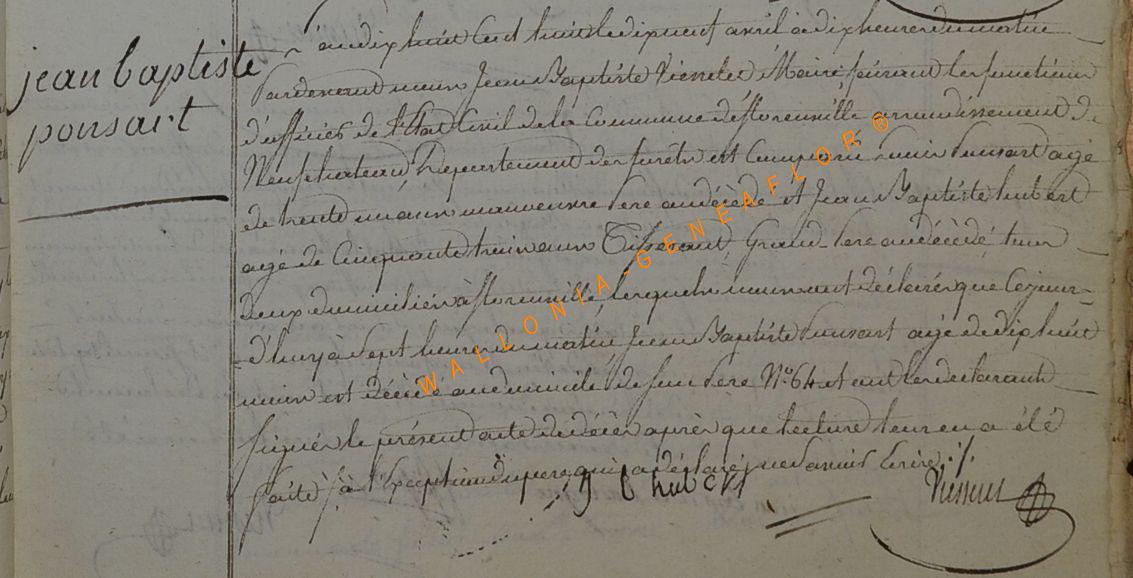 jean baptiste
ponsart
L'an dix huit cent huit le dix neuf avril à dix heures du matin
Pardevant nous Jean Baptiste Maire faisant les fonctions
d'officier de l'Etat Civil de la Commune de florenville arrondissement de
Neufchateau, Département des forêts est Comparu Ponsart agé
de trente un ans manoeuvre Pere au décédé et Jean Baptiste hubert
agé de Cinquante trois ans Tisserant, Grand Pere au décédé tous
deux domiciliés à florenville, lesquels nous ont déclarés que Cejour-
-d'huy à Sept heures du matin Jean Baptiste Ponsart agé de dix huit
mois est décédé au domicile de son Pere N° 64 et ont les declarants
signés le présent acte de décès après que lecture leur en a été
faite, à l'Exception du pere qui a déclaré ne Savoir Ecrire ./.
j b hubert
WALLONIA-GENEAFLOR ©